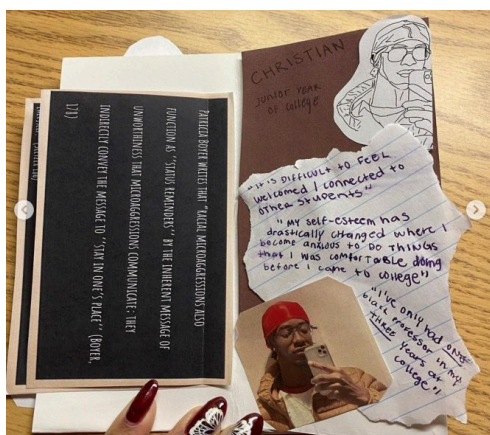 PATRICIA BOYER WRITES THAT "RACIAL MICROAGGRESSIONS ALSO
FUNCTION AS "STATUS REMINDERS'' BY THE INHERENT MESSAGE OF
UNWORTHINESS THAT MICROAGGRESSIONS COMMUNICATE; THEY
INDIRECTLY CONVEY THE MESSAGE TO "STAY IN ONE'S PLACE'' (BOYER,
178).
CHRISTIAN
JUNIOR YEAR
OF COLLEGE
"IT IS DIFFICULT TO FEEL
welcomed / connected to
other STUDENTS"
"MY self-esteem has
drastically changed where I
become anxious to DO THINGS
that I was comfortable doing
before I came to college"
"I've only had one
black professor in my
THREE years at
college"